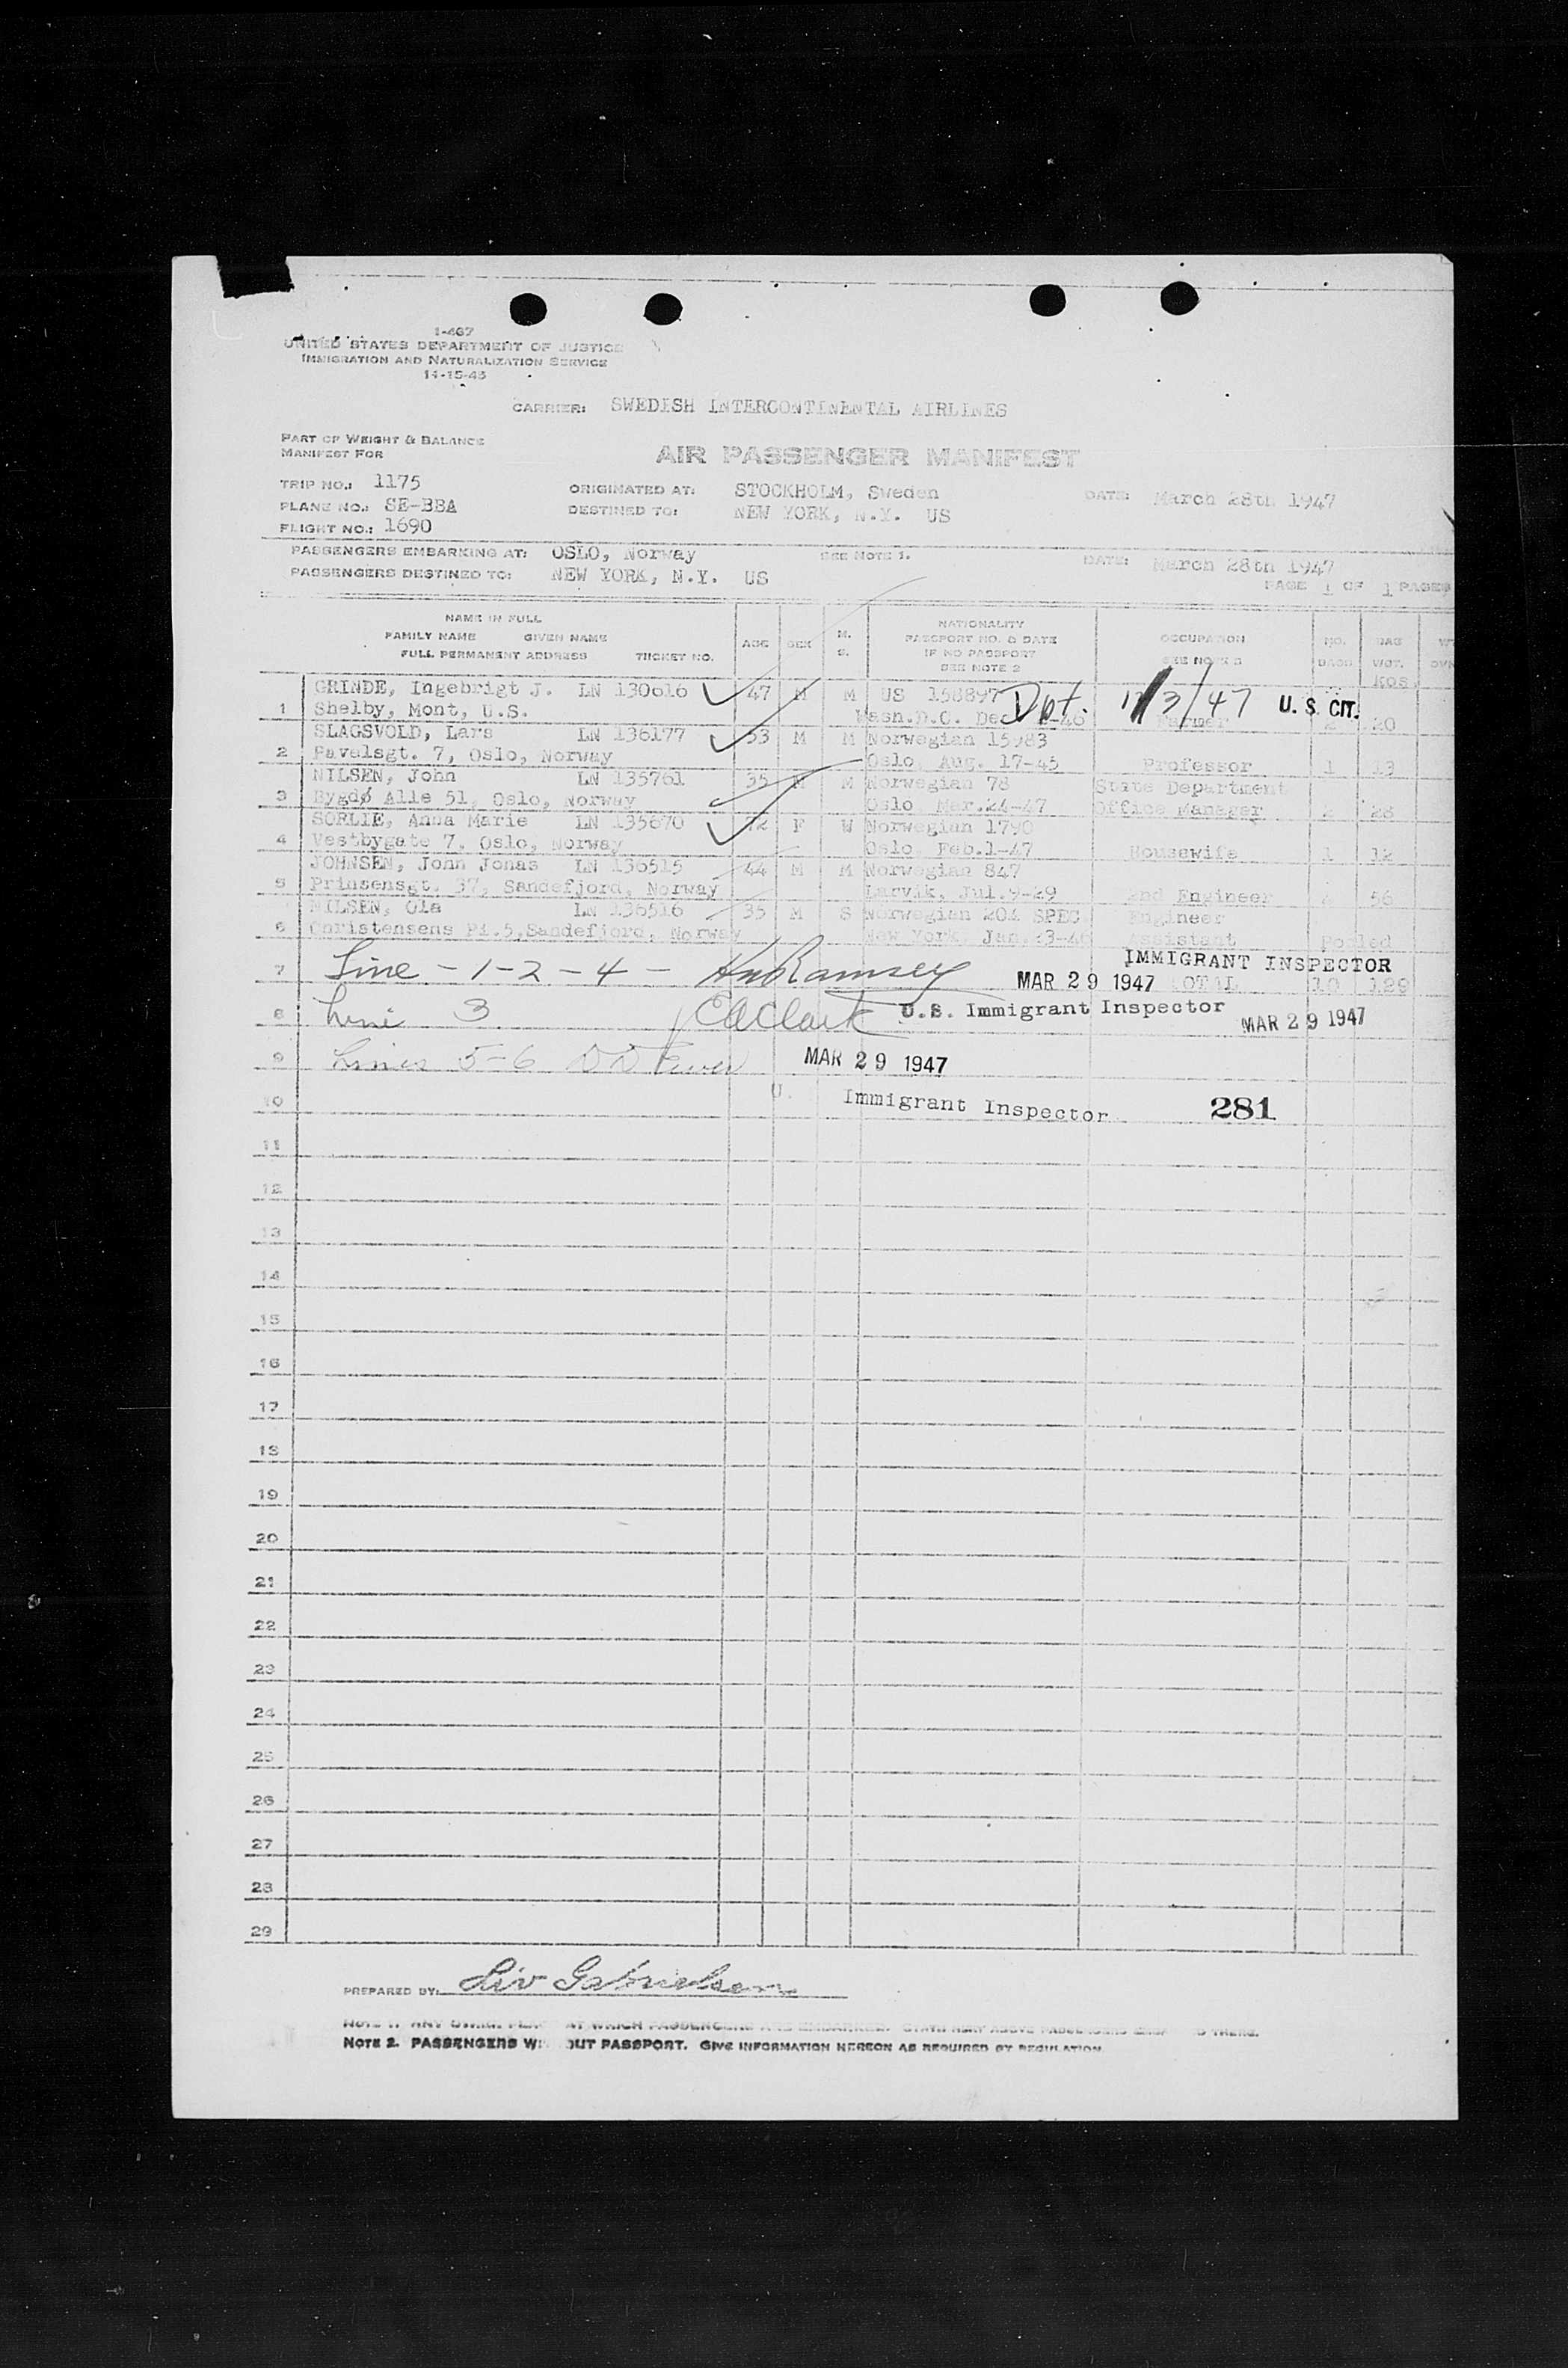 1-467
UNITED STATES DEPARTMENT OF JUSTICE
IMMIGRATION AND NATURALIZATION SERVICE
14-15-45
CARRIER: SWEDISH INTERCONTINENTAL AIRLINES
PART OF WEIGHT & BALANCE
MANIFEST FOR
AIR PASSENGER MANIFEST
TRIP NO.: 1175 ORIGINATED AT: STOCKHOLM, Sweden DATE: March 28th 1947
PLANE NO.: SE-BBA DESTINED TO: NEW YORK, N.Y. US
FLIGHT NO.: 1690
PASSENGERS EMBARKING AT: OSLO, Norway SEE NOTE 1. DATE: March 28th 1947
PASSENGERS DESTINED TO: NEW YORK, N.Y. US
PAGE 1 OF 1 PAGES
NAME IN FULL
FAMILY NAME GIVEN NAME
FULL PERMANENT ADDRESS TICKET NO.
AGE SEX M. S.
NATIONALITY
PASSPORT NO. & DATE
IF NO PASSPORT
SEE NOTE 2
OCCUPATION
SEE NOTE 3
NO. BAGS
BAG WGT.
KGS.
GRINDE, Ingebrigt J. LN 130616 47 M M US 158897 Dpt. 11/3/47 U.S. CIT.
1 Shelby, Mont, U.S. Wash.D.C. Dec. Farmer 2 20
SLAGSVOLD, Lars LN 136177 53 M M Norwegian 15983
2 Pavelsgt. 7, Oslo, Norway Oslo, Aug. 17-45 Professor 1 13
NILSEN, John LN 135761 35 M M Norwegian 78 State Department
3 Bygdø Alle 51, Oslo, Norway Oslo Mar.24-47 Office Manager 2 28
SORLIE, Anna Marie LN 135670 72 F W Norwegian 1790
4 Vestbygate 7. Oslo, Norway Oslo Feb.1-47 Housewife 1 12
JOHNSEN, John Jonas LN 136515 44 M M Norwegian 847
5 Prinsensgt. 37, Sandefjord, Norway Larvik, Jul.9-29 2nd Engineer 4 56
NILSEN, Ola LN 136516 35 M S Norwegian 204 SPEC Engineer
6 Christensens Pl.5, Sandefjord, Norway New York, Jan. Assistant Pooled
IMMIGRANT INSPECTOR
7 Line - 1 - 2 - 4 - HW Ramsey MAR 29 1947 TOTAL 10 129
8 Line 3 CA Clark U.S. Immigrant Inspector MAR 29 1947
9 Lines 5-6 MAR 29 1947
10 U. Immigrant Inspector 281
11
12
13
14
15
16
17
18
19
20
21
22
23
24
25
26
27
28
29
PREPARED BY: Liv Gabrielsen
NOTE 2. PASSENGERS OUT PASSPORT. GIVE INFORMATION HEREON AS REQUIRED BY REGULATION